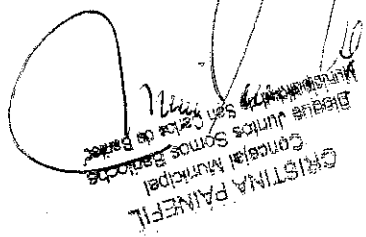 CRISTINA PAINEFIL
Concejal Municipal
Bloque Juntos Somos Bariloche
Municipalidad San Carlos de Barilo